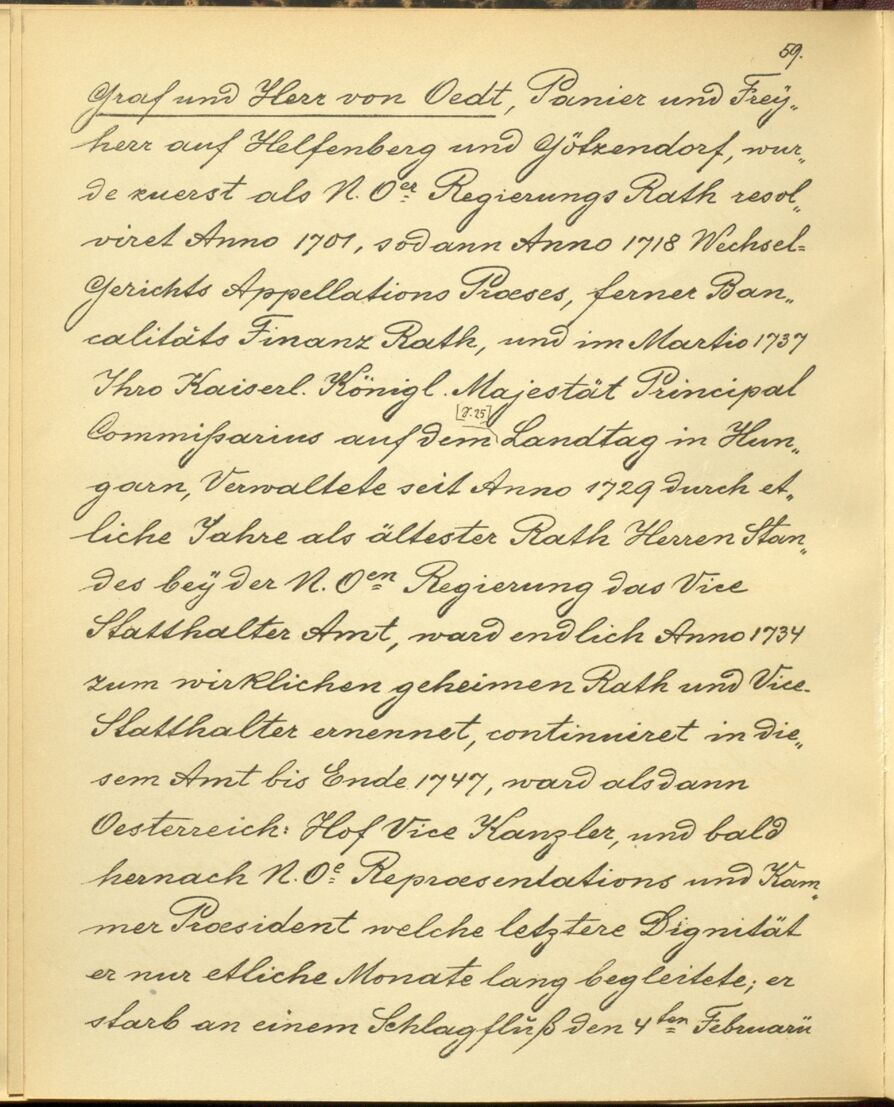 59.
Graf und Herr von Oedt, Panier und Frey„
herr auf Helfenberg und Götzendorf, wur„
de zuerst als N. Oer Regierungs Rath resol„
viret Anno 1701, sodann Anno 1718 Wechsel=
Gerichts Appellations Præses, ferner Ban„
calitäts Finanz Rath, und im Martio 1737
Ihro Kaiserl. Königl. Majestät Principal
[J. 25]
Commißarius auf dem Landtag in Hun„
garn, Verwaltete seit Anno 1729 durch et„
liche Jahre als ältester Rath Herren Stan„
des beÿ der N. Oen Regierung das Vice
Statthalter Amt, ward endlich Anno 1734
zum wirklichen geheimen Rath und Vice-
Statthalter ernennet, continuiret in die„
sem Amt bis Ende 1747, ward alsdann
Oesterreich: Hof Vice Kanzler, und bald
hernach N. Oe Repræsentations und Kam„
mer Præsident welche letztere Dignität
er nur etliche Monate lang begleitete; er
starb an einem Schlagfluß den 4ten Februarii